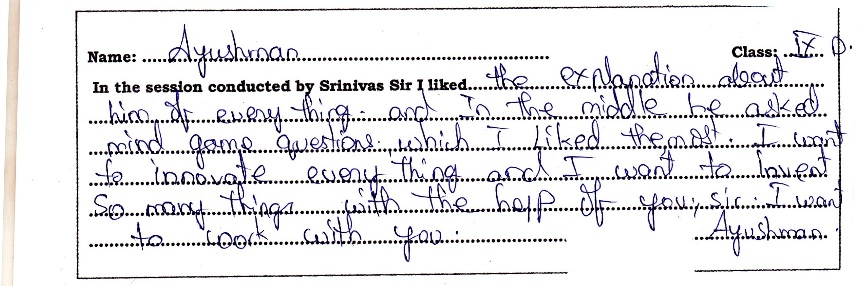 Name: Ayushman Class: IX D.
In the session conducted by Srinivas Sir I liked the explanation about
him of every thing. and in the middle he asked
mind game questions which I liked themost. I want
to innovate every thing and I want to Invent
So many things with the help of you, sir. I wan
to work with you. Ayushman.